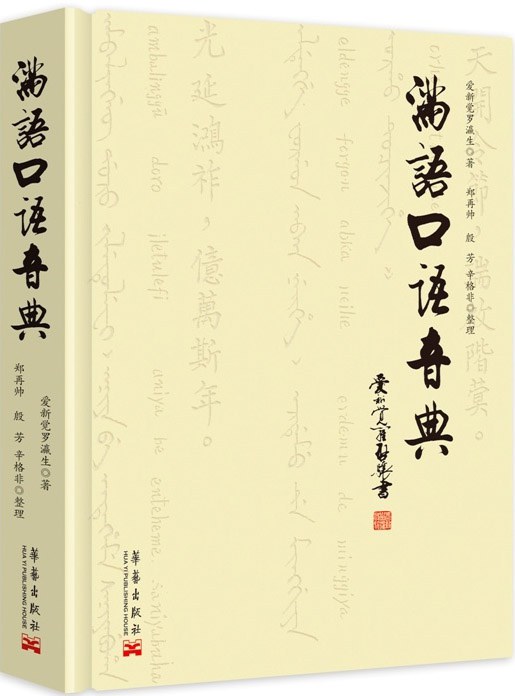 满語口语音典
爱新觉罗瀛生◎著
郑再帅 殷芳 辛格非◎整理
華藝出版社
HUA YI PUBLISHING HOUSE
满語口语音典
爱新觉罗瀛生◎著 郑再帅 殷芳 辛格非◎整理
愛新覺羅啟驤書
天開令節，瑞啟階蓂。
aldengge forgon abka neihe erdemu de minggiya
光延鴻祚，億萬斯年。
ambalinggū doro iletulefi aniya be enteheme saniyabuha
華藝出版社
HUA YI PUBLISHING HOUSE